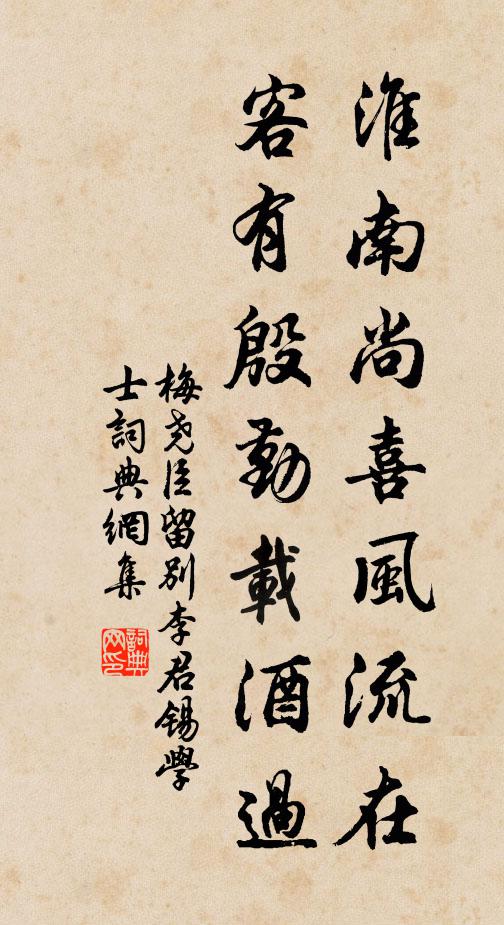 淮南尚喜風流在
客有殷勤載酒過
梅尧臣留別李君錫學
士詞典網集
詞典网印